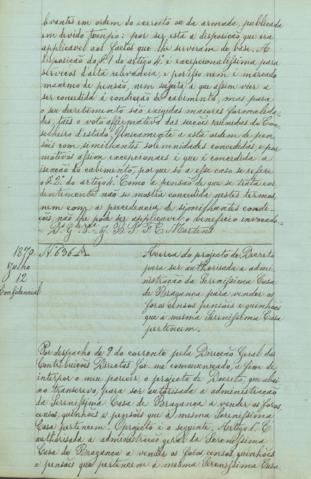 levantes em ordem do exercito ou da armada, publicada
em devido tempo: por ser esta a disposição que era
applicavel aos factos que lhe serviram de base. A
disposição do § 1.º do artigo 4.º é excepcionalissima para
serviços d'alta relevancia e por isso nem é marcado
maximo de pensão, nem sujeita a que assim vier a
ser concedida á condição de cabimento, mas para
o seu decretamento são exigidas maiores formalida-
des, taes o voto affirmativo das secções reunidas do Con-
selho d'estado. Unicamente a esta ordem de pen-
sões com similhantes solemnidades concedidas e por
motivos assim excepcionaes é que é concedida a
isenção do cabimento, por que só a esse caso se refere
o § 2.º do artigo 4.º Como a pensão de que se trata
não se mostra concedida nestes termos,
nem com a precedencia de similhantes condi-
ções, não lhe póde ser applicavel o beneficio invocado.
Martens
1873
Julho
12
Confidencial
N.º 636
Ácerca do projecto de Decreto
para ser authorisada a admi-
nistração da Serenissima Casa
de Bragança para vender os
foros censos pensões e quinhões
que á mesma Serenissima Casa
pertencem.
Por despacho de 9 do corrente pela Direcção Geral das
Contribuições Directas foi-me communicado, a fim de
interpor o meu parecer o projecto de Decreto, que abai-
xo transcrevo, para ser authorisada a administração
da Serenissima Casa de Bragança a vender os foros
censos, quinhões e pensões que á mesma Serenissima
Casa pertencem. O projecto é o seguinte. Artigo 1.º É
authorisada a administração geral da Serenissima
Casa de Bragança a vender os foros censos, quinhões
e pensões que pertencem á mesma Serenissima Casa